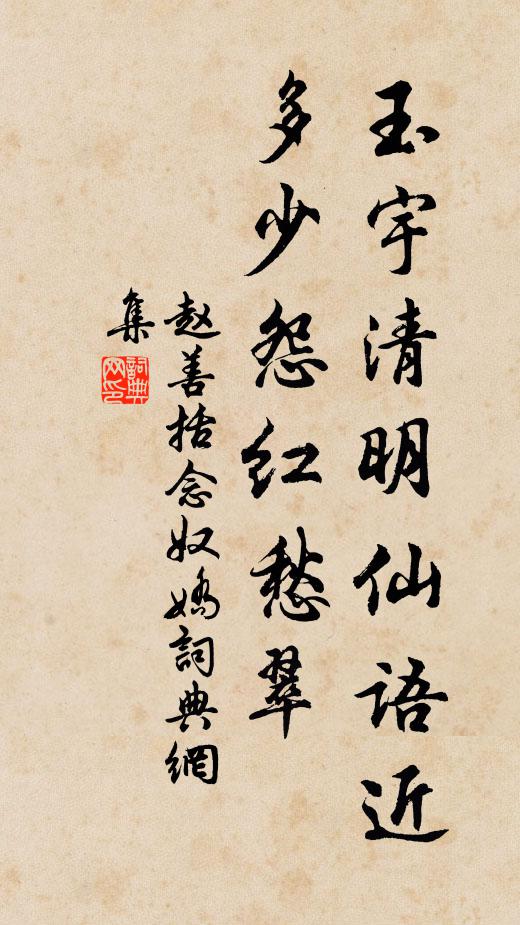 玉宇清明仙语近
多少怨红愁翠
赵善括念奴娇詞典網
集
詞典网印